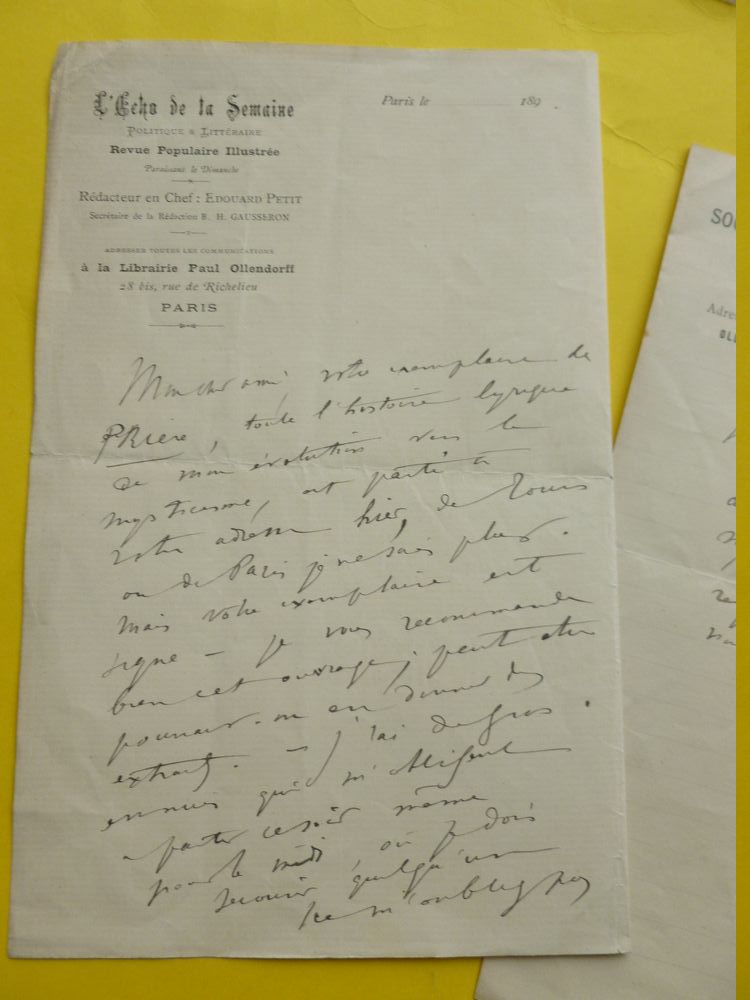 L'Echo de la Semaine
POLITIQUE & LITTÉRAIRE
Revue Populaire Illustrée
Paraissant le Dimanche
Rédacteur en Chef : EDOUARD PETIT
Secrétaire de la Rédaction B. H. GAUSSERON
ADRESSER TOUTES LES COMMUNICATIONS
à la Librairie Paul Ollendorff
28 bis, rue de Richelieu
PARIS
Paris le 189 .
Mon cher ami, votre exemplaire de
PRIÈRE, toute l'histoire lyrique
de mon évolution vers le
mysticisme, est parti à
votre adresse hier, de Tours
ou de Paris je ne sais plus.
Mais votre exemplaire est
signé — je vous recommande
bien cet ouvrage; peut être
pourrait-on en donner des
extraits. — J'ai de gros
ennuis qui m'obligent
à partir ce soir même
pour le midi où je dois
secourir quelqu'un
Ne m'oubliez pas
SO
Adre
OLL